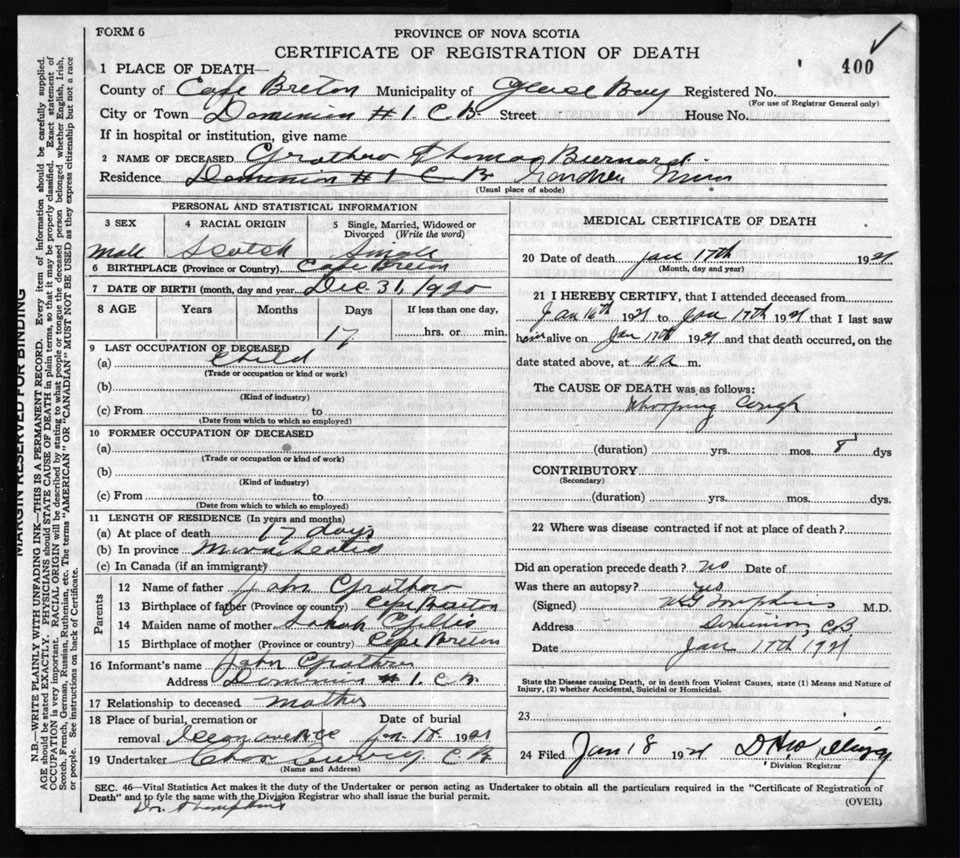 FORM 6
PROVINCE OF NOVA SCOTIA
CERTIFICATE OF REGISTRATION OF DEATH
400
1 PLACE OF DEATH—
County of Cape Breton Municipality of Glace Bay Registered No.
(For use of Registrar General only)
City or Town Dominion #1. C.B. Street House No.
If in hospital or institution, give name
2 NAME OF DECEASED Thomas Bernard
Residence Dominion #1 C B Gardner Mines
(Usual place of abode)
PERSONAL AND STATISTICAL INFORMATION
3 SEX 4 RACIAL ORIGIN 5 Single, Married, Widowed or Divorced (Write the word)
Male Scotch Single
6 BIRTHPLACE (Province or Country) Cape Breton
7 DATE OF BIRTH (month, day and year) Dec 31, 1920
8 AGE Years Months Days If less than one day,
17 hrs. or min.
9 LAST OCCUPATION OF DECEASED
(a) Child
(Trade or occupation or kind or work)
(b)
(Kind of industry)
(c) From to
(Date from which to which so employed)
10 FORMER OCCUPATION OF DECEASED
(a)
(Trade or occupation or kind of work)
(b)
(Kind of industry)
(c) From to
(Date from which to which so employed)
11 LENGTH OF RESIDENCE (In years and months)
(a) At place of death 17 days
(b) In province
(c) In Canada (if an immigrant)
Parents
12 Name of father John
13 Birthplace of father (Province or country) Cape Breton
14 Maiden name of mother Sarah Gillis
15 Birthplace of mother (Province or country) Cape Breton
16 Informant's name John
Address Dominion #1. C B.
17 Relationship to deceased
18 Place of burial, cremation or removal Date of burial
Jan 18 1921
19 Undertaker C B
(Name and Address)
MEDICAL CERTIFICATE OF DEATH
20 Date of death Jan 17th 1921
(Month, day and year)
21 I HEREBY CERTIFY, that I attended deceased from
Jan 16th 1921 to Jan 17th 1921 that I last saw
h alive on Jan 17th 1921 and that death occurred, on the
date stated above, at 4 a m.
The CAUSE OF DEATH was as follows:
Whooping Cough
(duration) yrs. mos. 8 dys
CONTRIBUTORY
(Secondary)
(duration) yrs. mos. dys.
22 Where was disease contracted if not at place of death?
Did an operation precede death? no Date of
Was there an autopsy? yes
(Signed) M.D.
Address Dominion, CB
Date Jan 17th 1921
State the Disease causing Death, or in death from Violent Causes, state (1) Means and Nature of
Injury, (2) whether Accidental, Suicidal or Homicidal.
23
24 Filed Jan 18 1921
Division Registrar
SEC. 46—Vital Statistics Act makes it the duty of the Undertaker or person acting as Undertaker to obtain all the particulars required in the "Certificate of Registration of
Death" and to fyle the same with the Division Registrar who shall issue the burial permit.
(OVER)
MARGIN RESERVED FOR BINDING
N.B.—WRITE PLAINLY WITH UNFADING INK—THIS IS A PERMANENT RECORD. Every item of information should be carefully supplied.
AGE should be stated EXACTLY. PHYSICIANS should STATE CAUSE OF DEATH in plain terms, so that it may be properly classified. Exact statement of
OCCUPATION is very important. RACIAL ORIGIN will be described by stating to what people or tongue the deceased person belonged whether English, Irish,
Scotch, French, German, Russian, Ruthenian, etc. The terms "AMERICAN" OR "CANADIAN" MUST NOT BE USED as they express citizenship but not a race
or people. See instructions on back of Certificate.